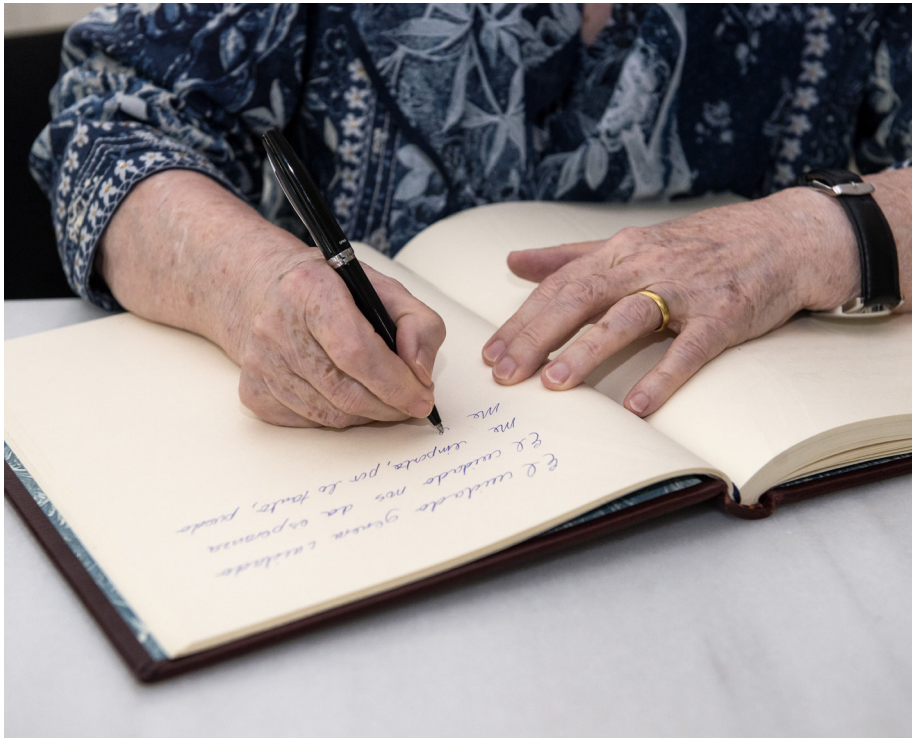 El cuidado genera cuidado
El cuidado nos da esperanza
Me importa, por lo tanto, puedo
Me